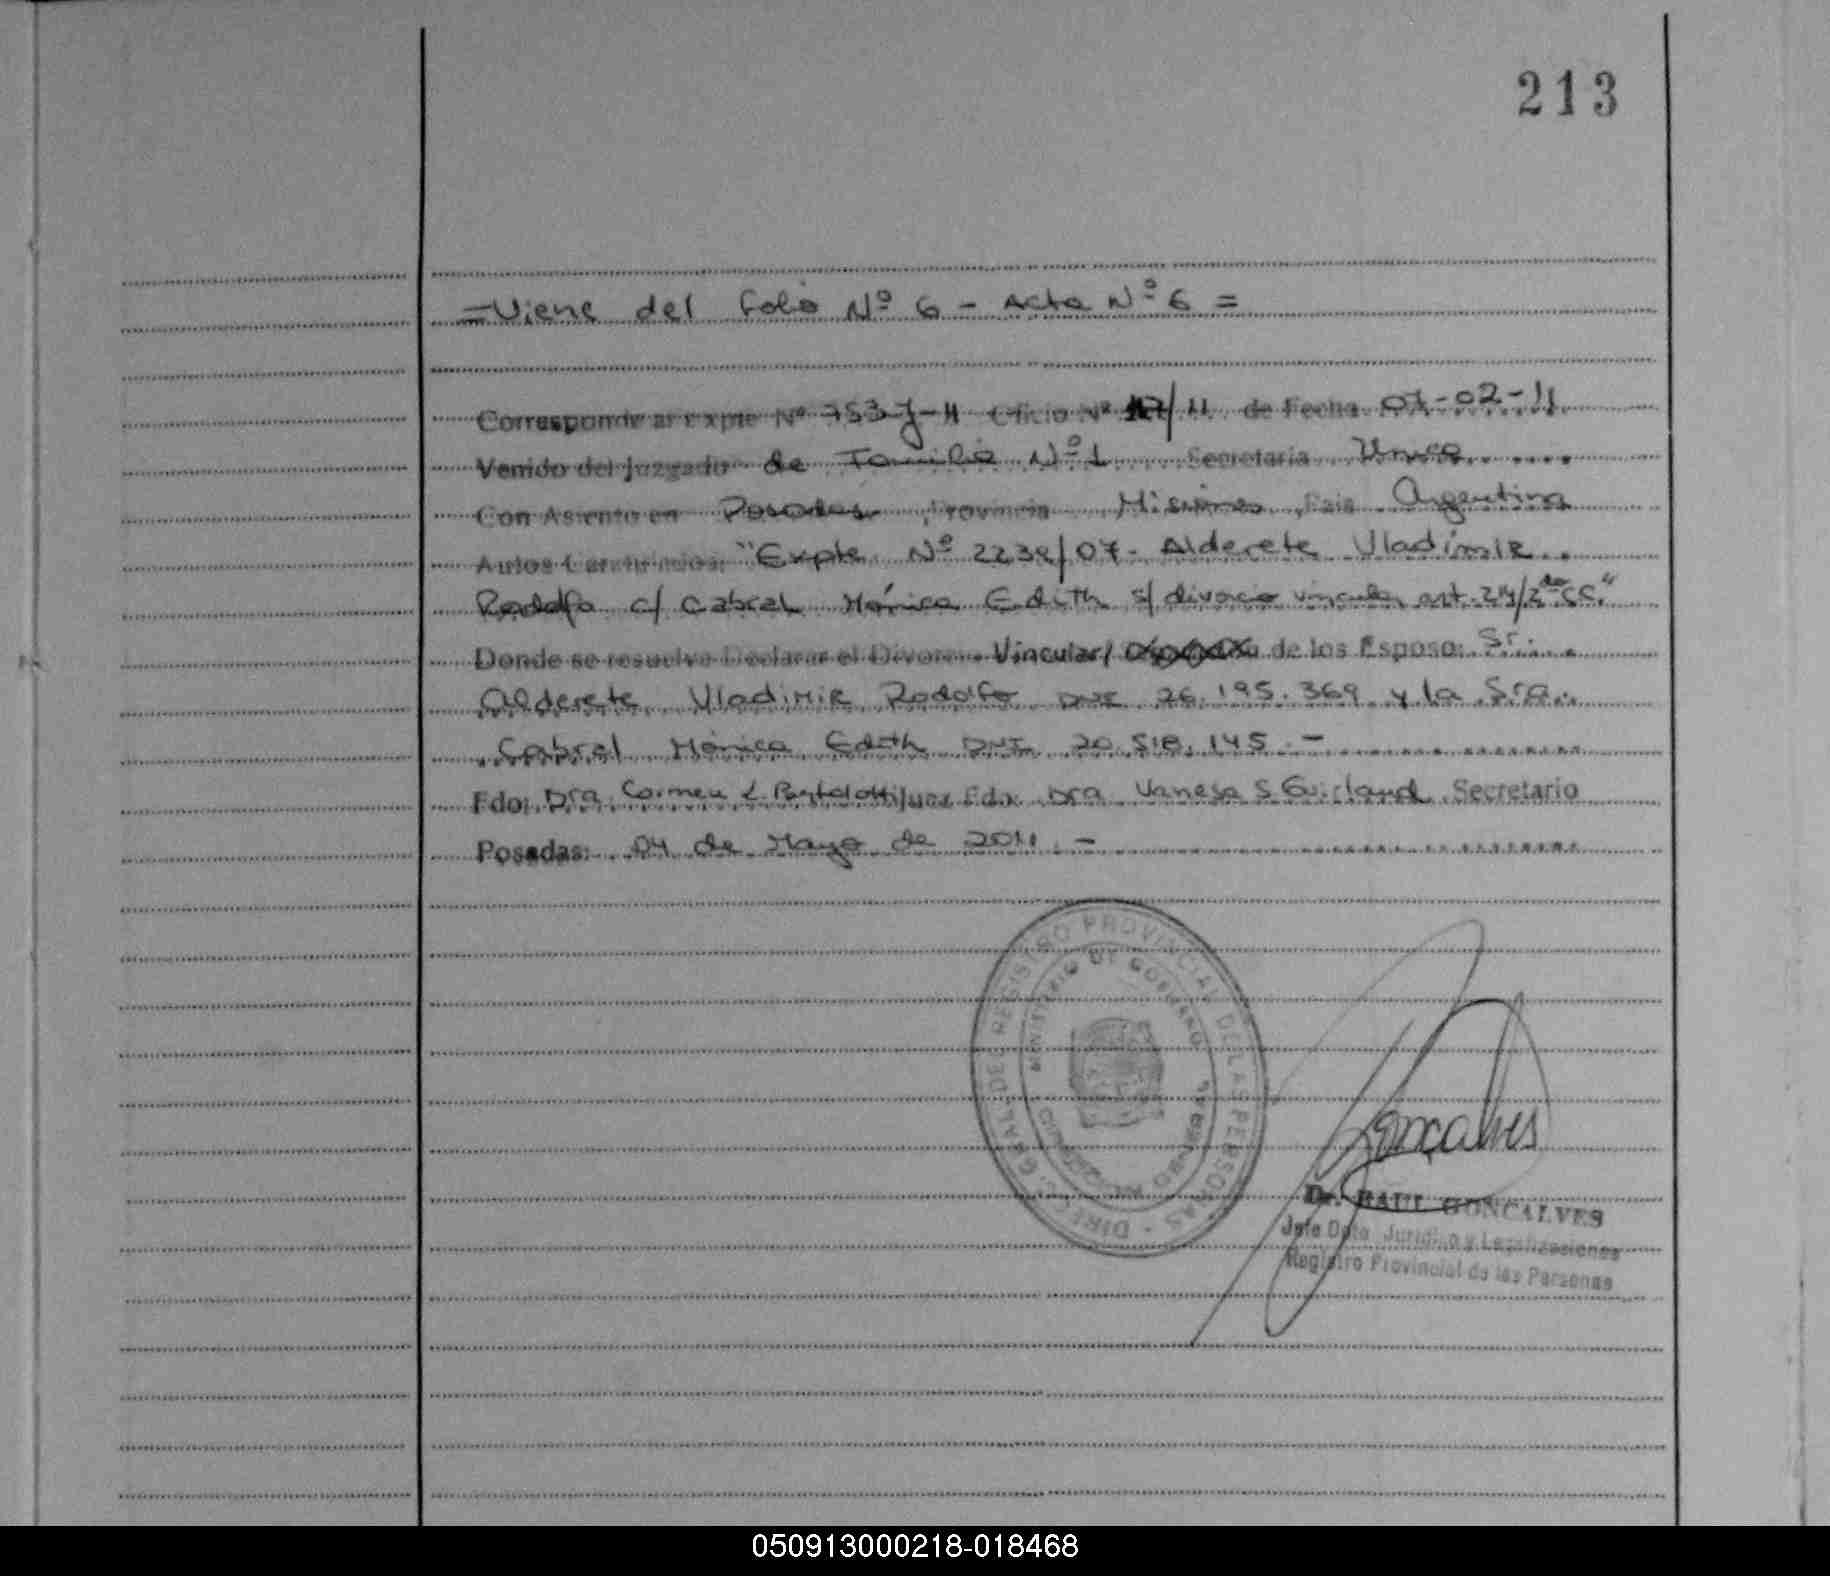 213
= Viene del folio Nº 6 - Acta Nº 6 =
Corresponde al Expte Nº 753 J-11 Oficio Nº 17/11 de Fecha 07-02-11
Venido del Juzgado de Familia Nº 1 Secretaria Unica
Con Asiento en Posadas, Provincia Misiones, Pais Argentina
Autos Caratulados: "Expte Nº 2238/07 - Alderete Vladimir
Rodolfo c/ Cabral Mónica Edith s/ divorcio vincular art. 214/2do CC."
Donde se resuelve Declarar el Divorcio Vincular/ de los Esposo: Sr.
Alderete Vladimir Rodolfo DNI 26.195.369 y la Sra.
Cabral Mónica Edith DNI 20.518.145.-
Fdo: Dra. Carmen L Bartolotti Juez Fdo: Dra Vanesa S Guirland Secretario
Posadas: 04 de Mayo de 2011.-
DIREC. GRAL. DE REGISTRO PROVINCIAL DE LAS PERSONAS
MINISTERIO DE GOBIERNO
Goncalves
Dr. RAUL GONCALVES
Jefe Dpto Juridico y Legalizaciones
Registro Provincial de las Personas
050913000218-018468